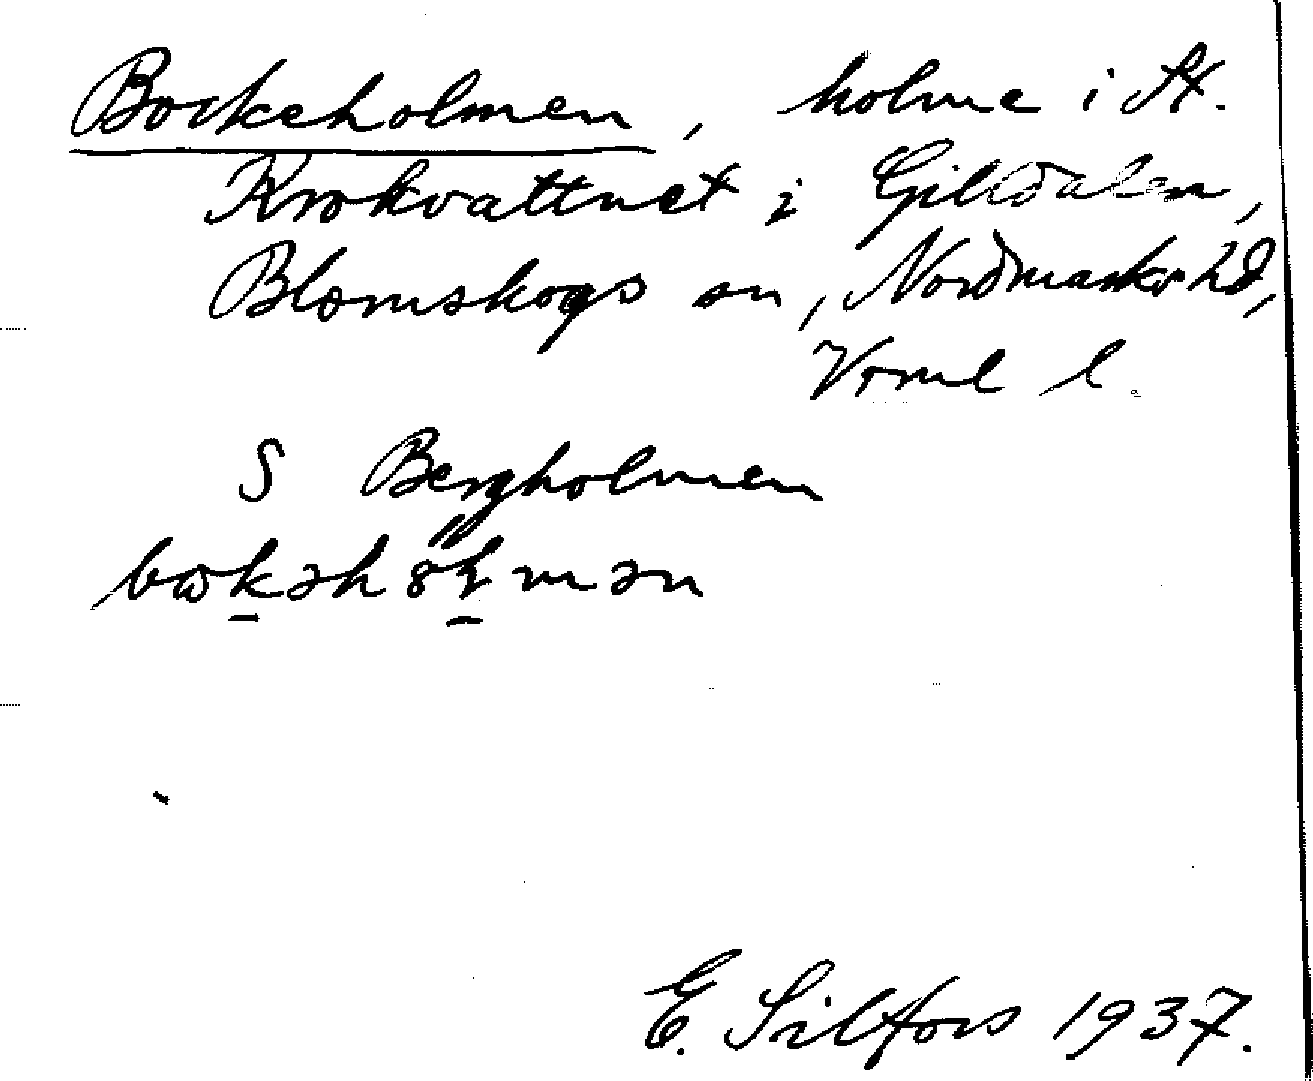 Bockeholmen, holme i St.
Krokvattnet i Gilldalen,
Blomskogs sn, Nordmarks hd,
Vrml l.
S Bergholmen
E. Silfors 1937.